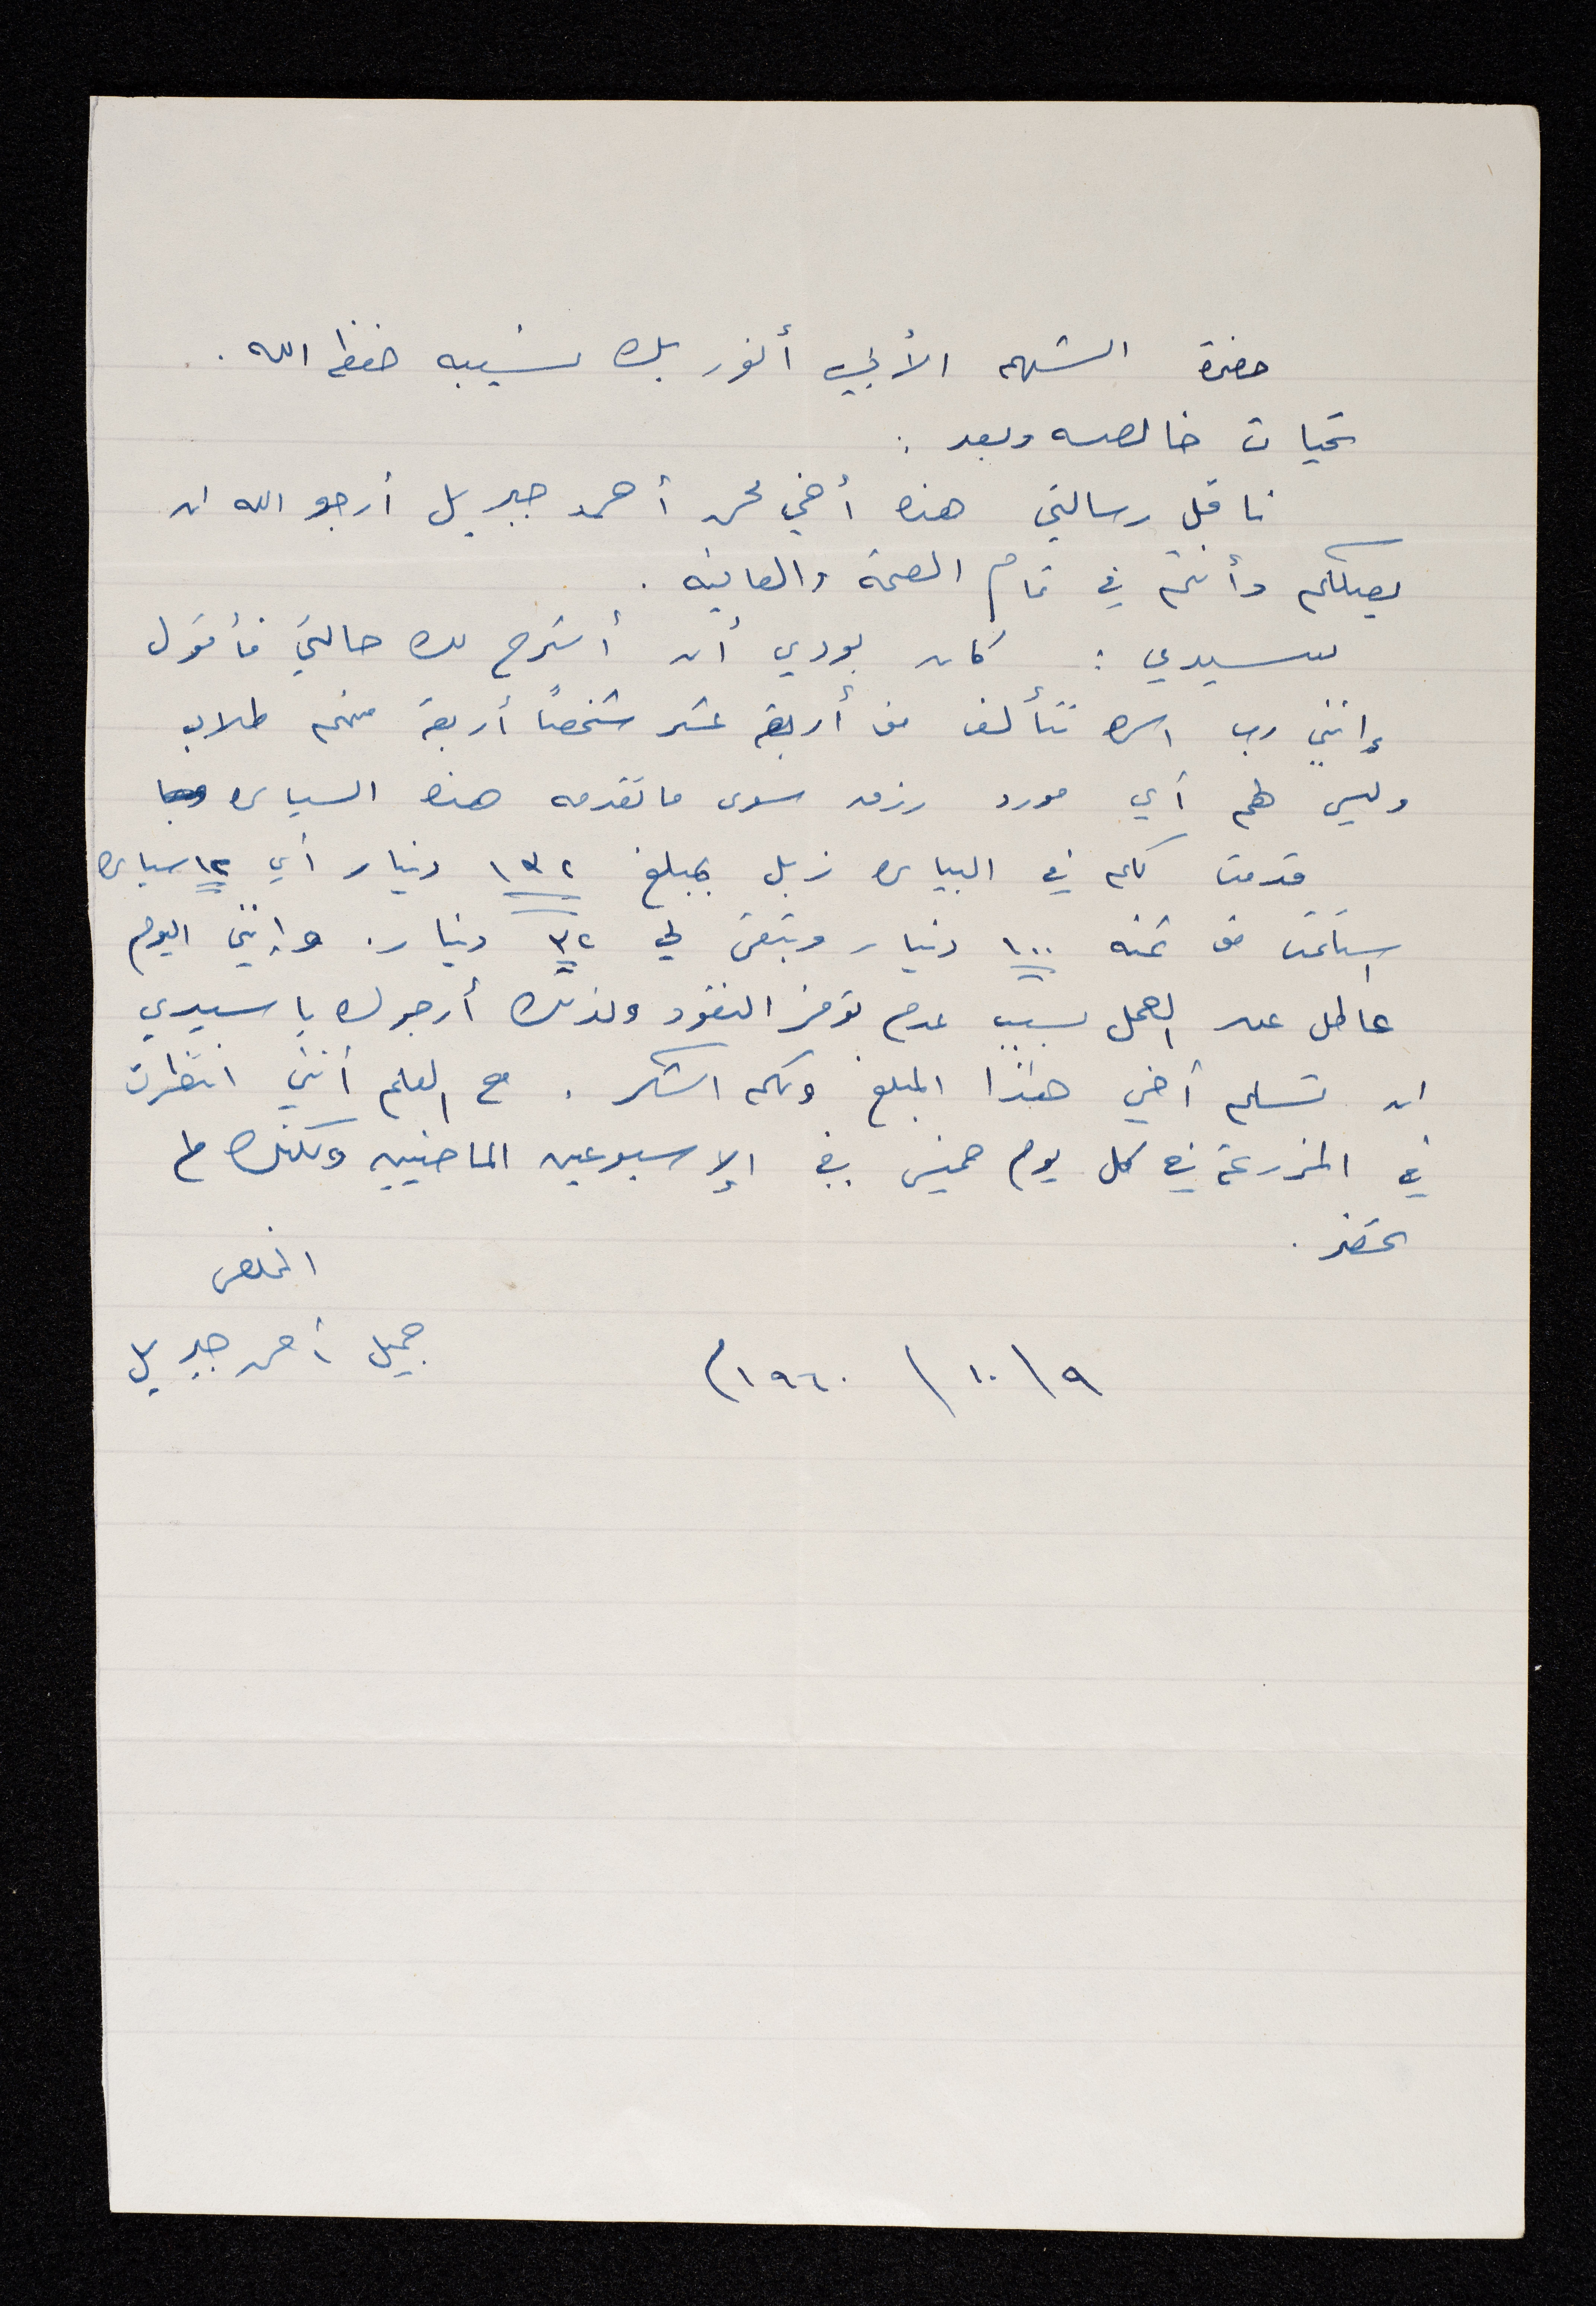 حضرة الشهم الأبي أنور بك نسيبه حفظه الله .
تحيات خالصه وبعد :
ناقل رسالتي هذه أخي محمد أحمد جبريل أرجو الله ان
يصلكم وأنتم في تمام الصحة والعافيه .
سيدي : كان بودي أن أشرح لك حالتي فأقول
إنني رب اسره تتألف من أربعة عشر شخصاً أربعة منهم طلاب
وليس لهم أي مورد رزق سوى ما تقدمه هذه السياره
قدمت لكم في البياره زبل بمبلغ ١٣٢ دينار أي ١٢ سياره
استلمت من ثمنه ١٠٠ دينار وتبقى لي ٣٢ دينار. وإنني اليوم
عاطل عن العمل بسبب عدم توفر النقود ولذلك أرجوك يا سيدي
ان تسلم أخي هذا المبلغ ولكم الشكر . مع العلم أنني انتظرت
في المزرعة في كل يوم خميس في الإسبوعين الماضيين ولكنك لم
تحضر .
المخلص
جميل أحمد جبريل
٩ / ١٠ / ١٩٦٠م